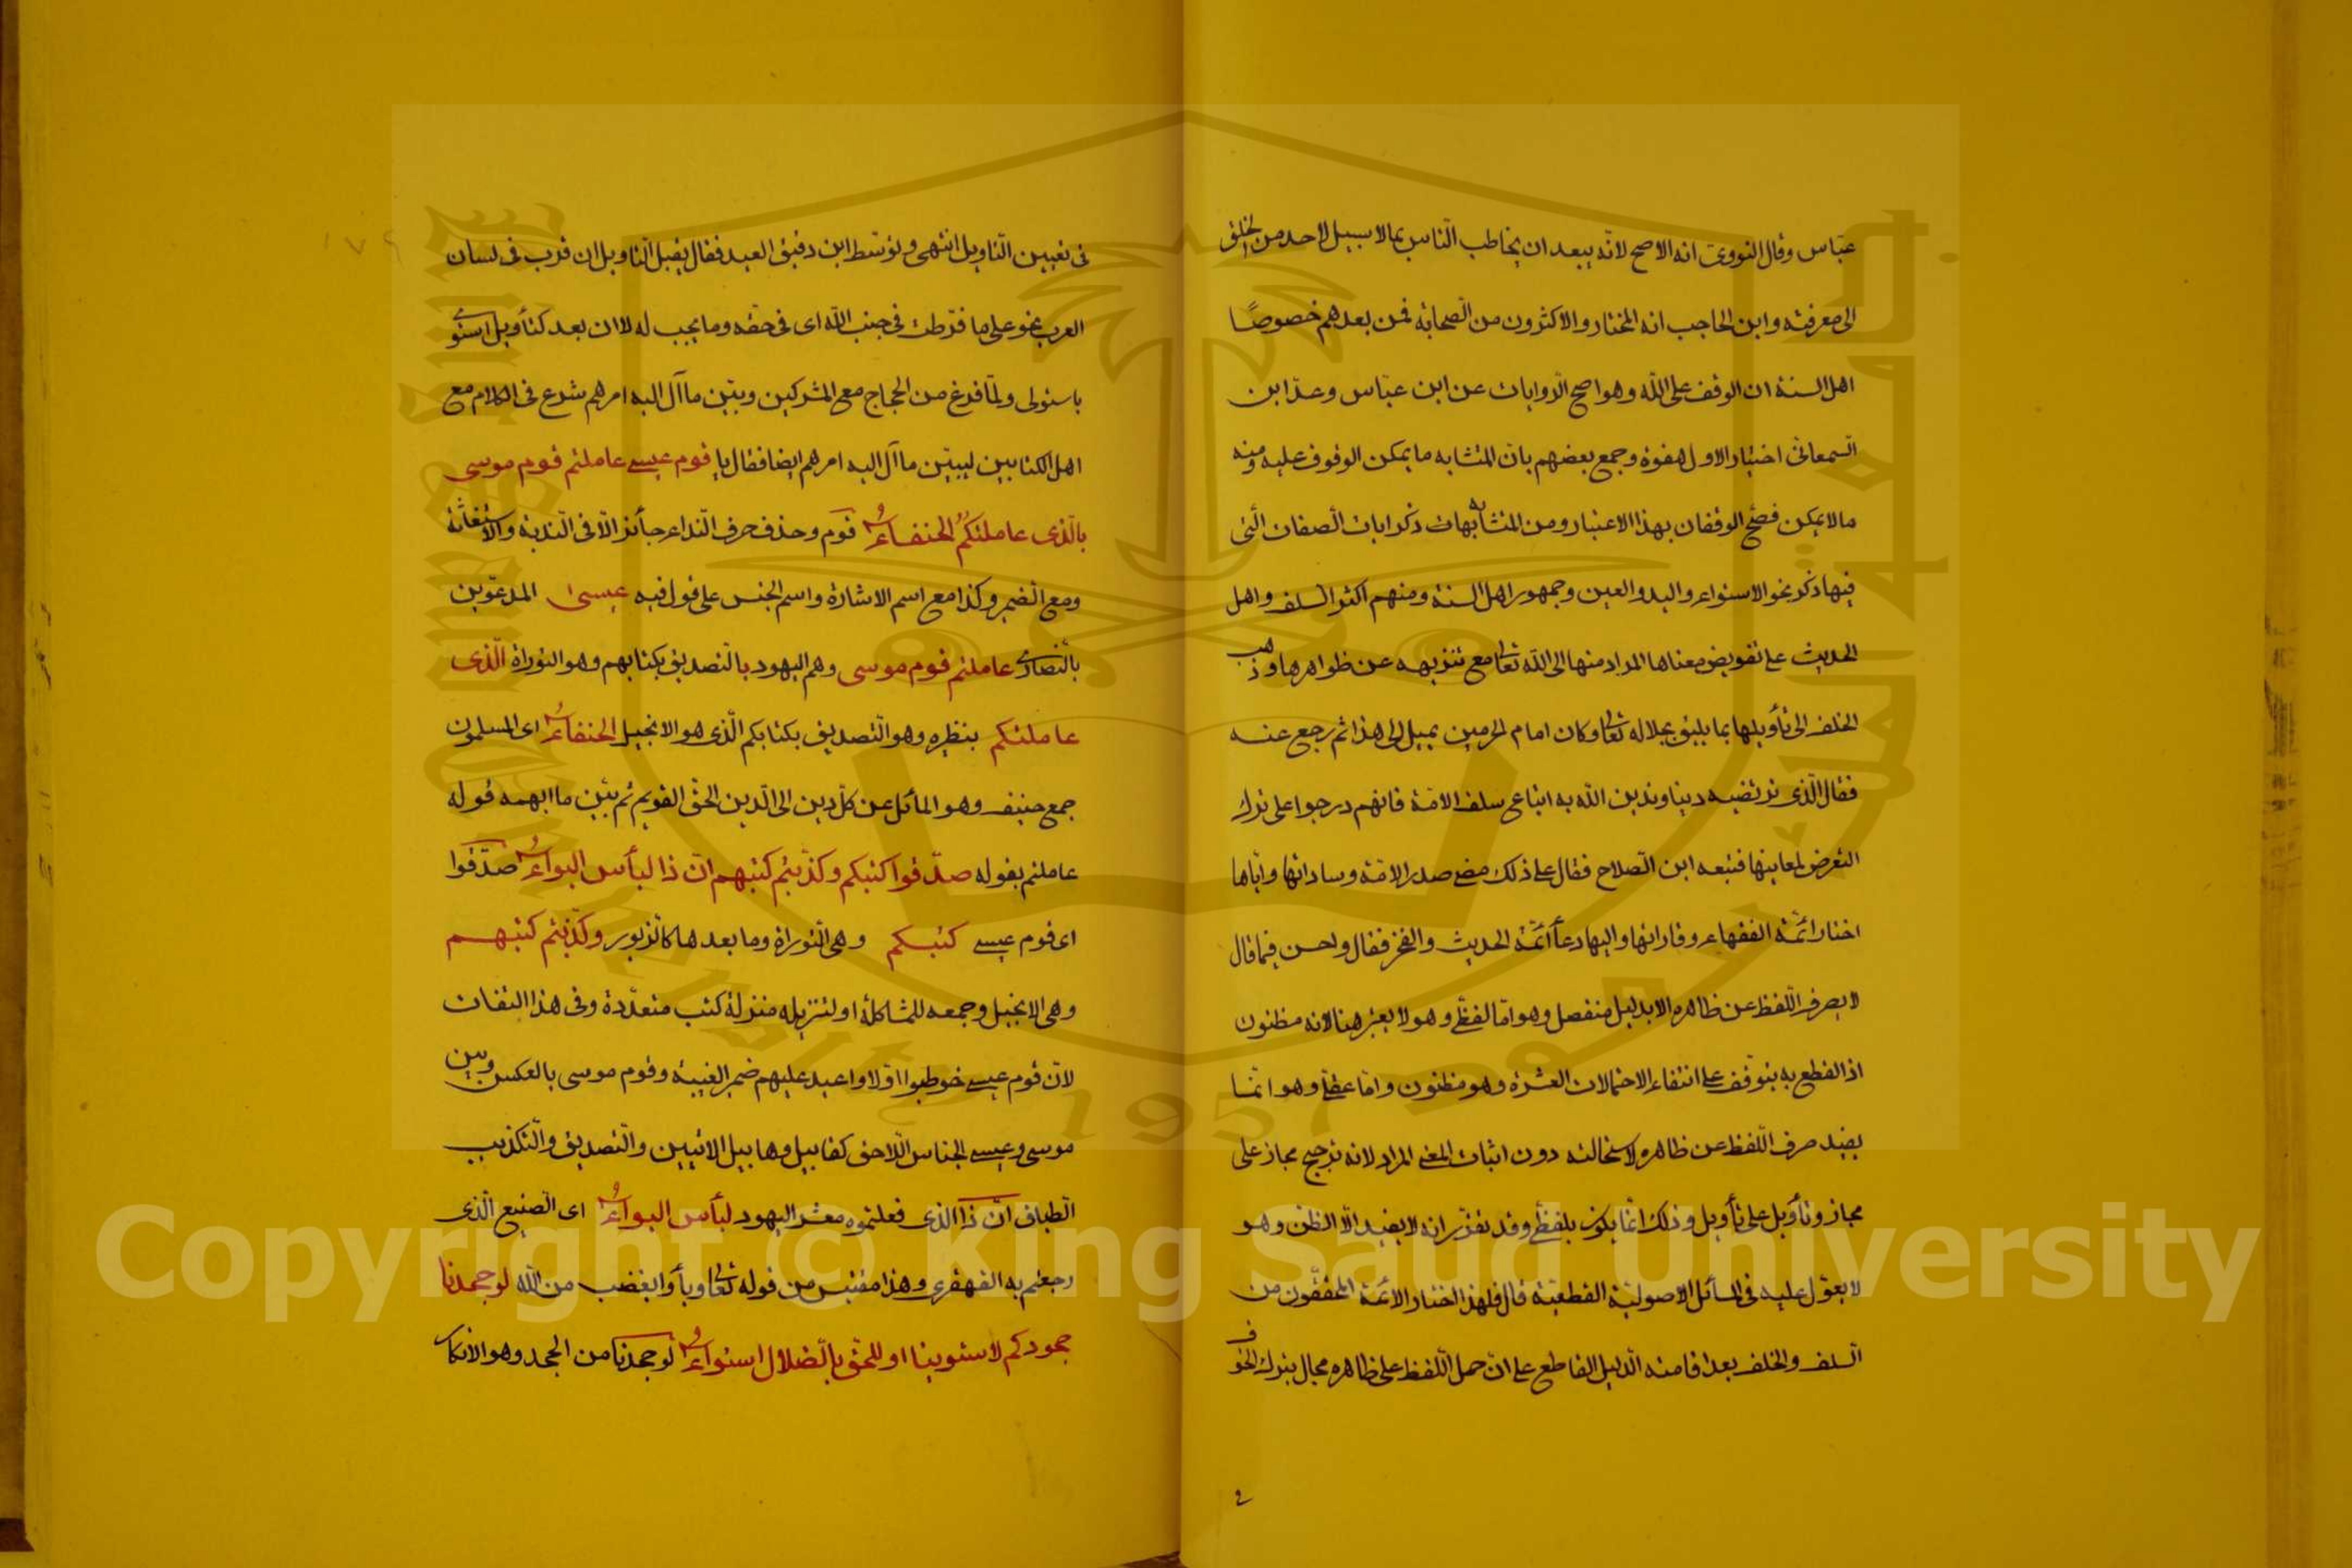 عباس وقال النووى انه الاصح لانه يبعد ان يخاطب الناس بما لا سبيل لاحد من الخلق
الى معرفته وابن الحاجب انه المختار والاكثرون من الصحابة فمن بعدهم خصوصًا
اهل السنة ان الوقف على الله وهو اصح الروايات عن ابن عباس وعد ابن
السمعانى اختيار الاول هفوة وجمع بعضهم بان المتشابه ما يمكن الوقوف عليه ومنه
ما لا يمكن فصح الوقفان بهذا الاعتبار ومن المتشابهات ذكر ايات الصفات التى
فيها ذكر نحو الاستواء واليد والعين وجمهور اهل السنة ومنهم اكثر السلف واهل
الحديث على تفويض معناها المراد منها الى الله تعالى مع تنزيهه عن ظواهرها وذهب
الخلف الى تأويلها بما يليق بجلاله تعالى وكان امام الحرمين يميل الى هذا ثم رجع عنه
فقال الذى نرتضيه دينا وندين الله به اتباع سلف الامة فانهم درجوا على ترك
التعرض لمعانيها فتبعه ابن الصلاح فقال على ذلك مضى صدر الامة وساداتها واياها
اختار ائمة الفقهاء وقاداتها واليها دعا ائمة الحديث والفخر فقال واحسن فيما قال
لا يصرف اللفظ عن ظاهره الا بدليل منفصل وهو اما لفظى وهو لا يعتبر هنا لانه مظنون
اذ القطع به يتوقف على انتفاء الاحتمالات العشرة وهو مظنون واما عقلى وهو انما
يفيد صرف اللفظ عن ظاهره لاستحالته دون اثبات المعنى المراد لانه ترجيح مجاز على
مجاز وتأويل على تأويل وذلك انما يكون بلفظى وقد تقرر انه لا يفيد الا الظن وهو
لا يعول عليه فى المسائل الاصولية القطعية قال فلهذا اختار الائمة المحققون من
السلف والخلف بعد اقامته الدليل القاطع على ان حمل اللفظ على ظاهره محال بترك الخوف
فى
فى تعيين التاويل انتهى وتوسط ابن دقيق العيد فقال يقبل التاويل ان قرب فى لسان
العرب نحو على ما فرطت فى جنب الله اى فى حقه وما يجب له لا ان بعد كتأويل استوى
باستولى ولما فرغ من الحجاج مع المشركين وبين ما آل اليه امرهم شرع فى الكلام مع
اهل الكتابين ليبين ما آل اليه امرهم ايضا فقال يا قوم عيسى عاملتم قوم موسى
بالذى عاملتكم الحنفاء قوم وحذف حرف النداء جائز الا فى الندبة والاستغاثة
ومع الضمير وكذا مع اسم الاشارة واسم الجنس على قول فيه عيسى المدعوين
بالنصارى عاملتم قوم موسى وهم اليهود بالتصديق بكتابهم وهو التوراة الذى
عاملتكم بنظيره وهو التصديق بكتابكم الذى هو الانجيل الحنفاء اى المسلمون
جمع حنيف وهو المائل عن كل دين الى الدين الحق القويم ثم بين ما ابهمه قوله
عاملتم بقوله صدقوا كتبكم وكذبتم كتبهم ان ذا لبأس البواء صدقوا
اى قوم عيسى كتبكم وهى التوراة وما بعدها كالزبور وكذبتم كتبهم
وهى الانجيل وجمعه للمشاكلة او لتنزيله منزلة كتب متعددة وفى هذا التفات
لان قوم عيسى خوطبوا اولا واعيد عليهم ضمير الغيبة وقوم موسى بالعكس وبين
موسى وعيسى الجناس اللاحق كقابيل وهابيل الاتيين والتصديق والتكذيب
الطباق ان ذا الذى فعلتموه معشر اليهود لبأس البواء اى الصنيع الذى
رجعتم به القهقرى وهذا مقتبس من قوله تعالى وبأوا بغضب من الله لو جحدنا
جحودكم لاستوينا او للحق بالضلال استواء لو جحدنا من الجحد وهو الانكار
Copyright © King Saud University
1957